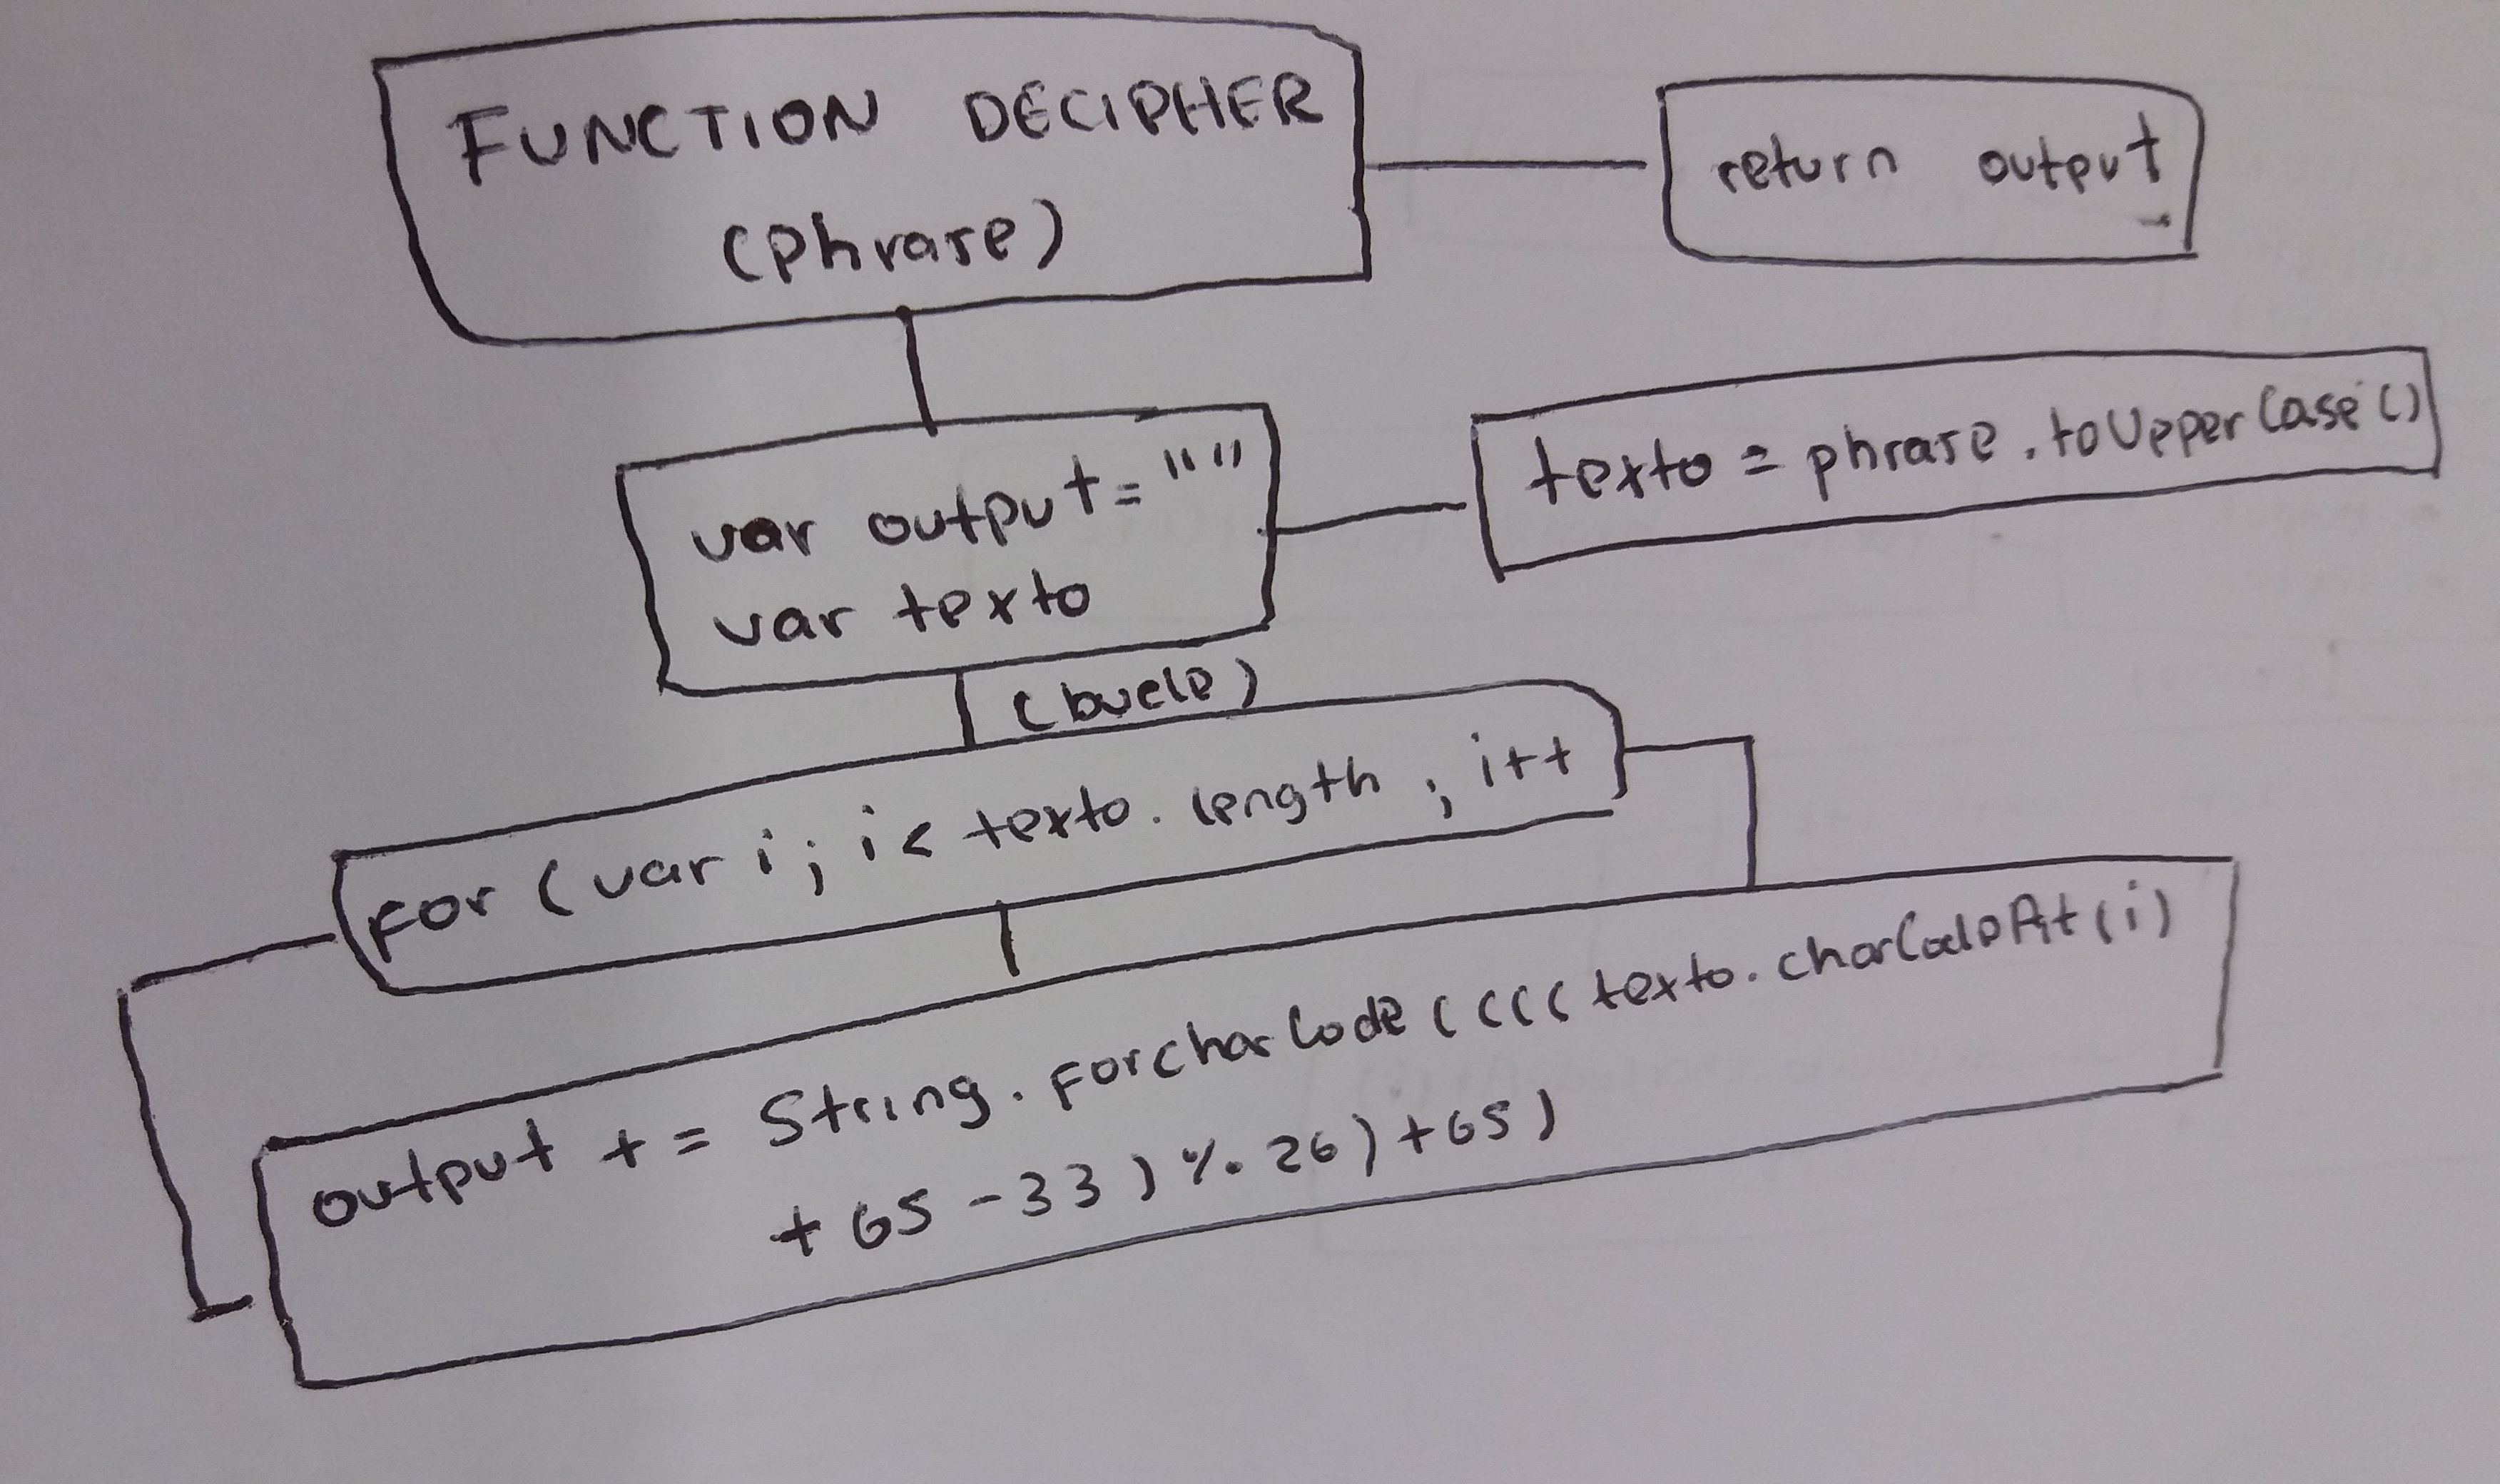 FUNCTION DECIPHER
(Phrase)
return output
var output = ""
var texto
texto = phrase.toUpperCase()
(bucle)
for (var i; i < texto.length; i++
output += String.forcharCode((((texto.charCodeAt(i)
+65-33)%26)+65)